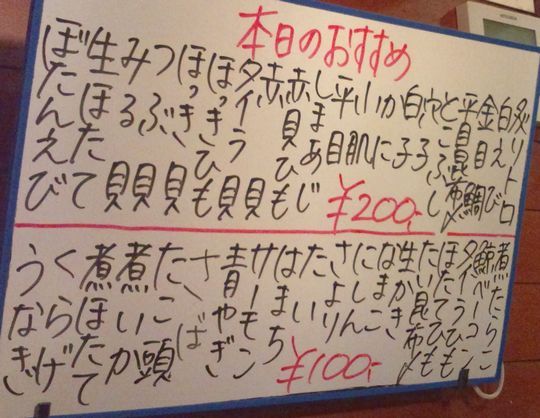 本日のおすすめ
炙りトロ
白えび
金目鯛
平目昆布〆
とこぶし
穴子
白子
かに
小肌
平目
しまあじ
赤貝ひも
赤貝
タイラ貝
ほっきひも
ほっき貝
つぶ貝
みる貝
生ほたて
ぼたんえび
¥200-
煮たらこ
鮪ベーコン
タイラひも
ほたてひも
たい昆布〆
生かき
なまこ
にしん
さより
たい
はまち
サーモン
青やぎ
さば
たこ頭
煮いか
煮ほたて
くらげ
うなぎ
¥100-